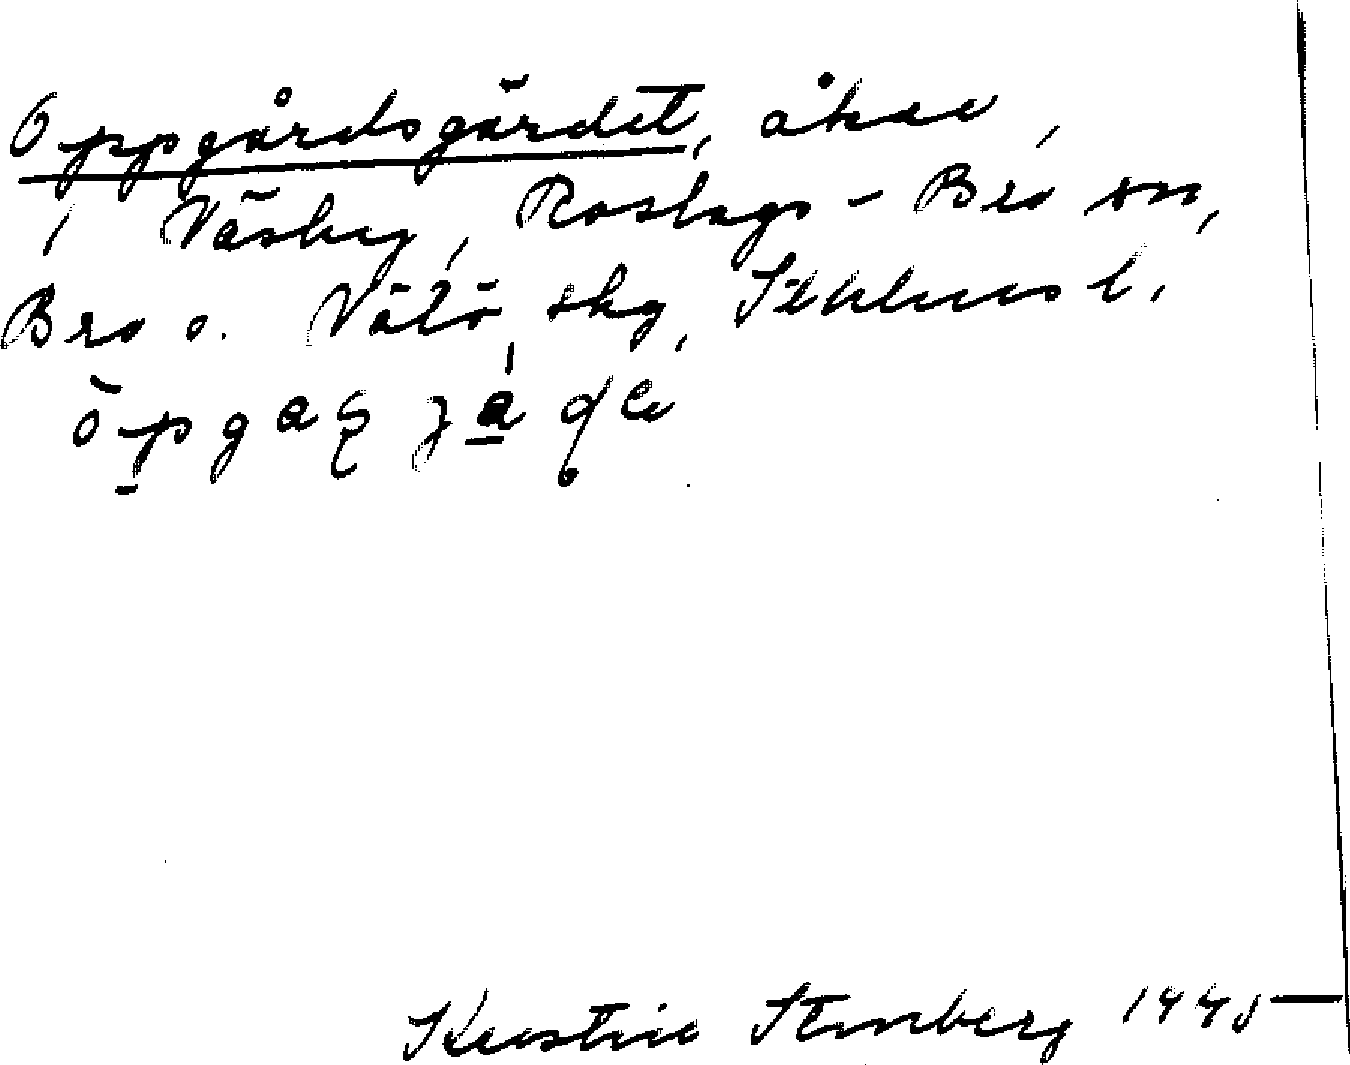 Oppgårdsgärdet, åker,
i Väsby, Roslags-Bro sn,
Bro o. Vätö skg, Sthlms l.
Kerstin Stenberg 1945